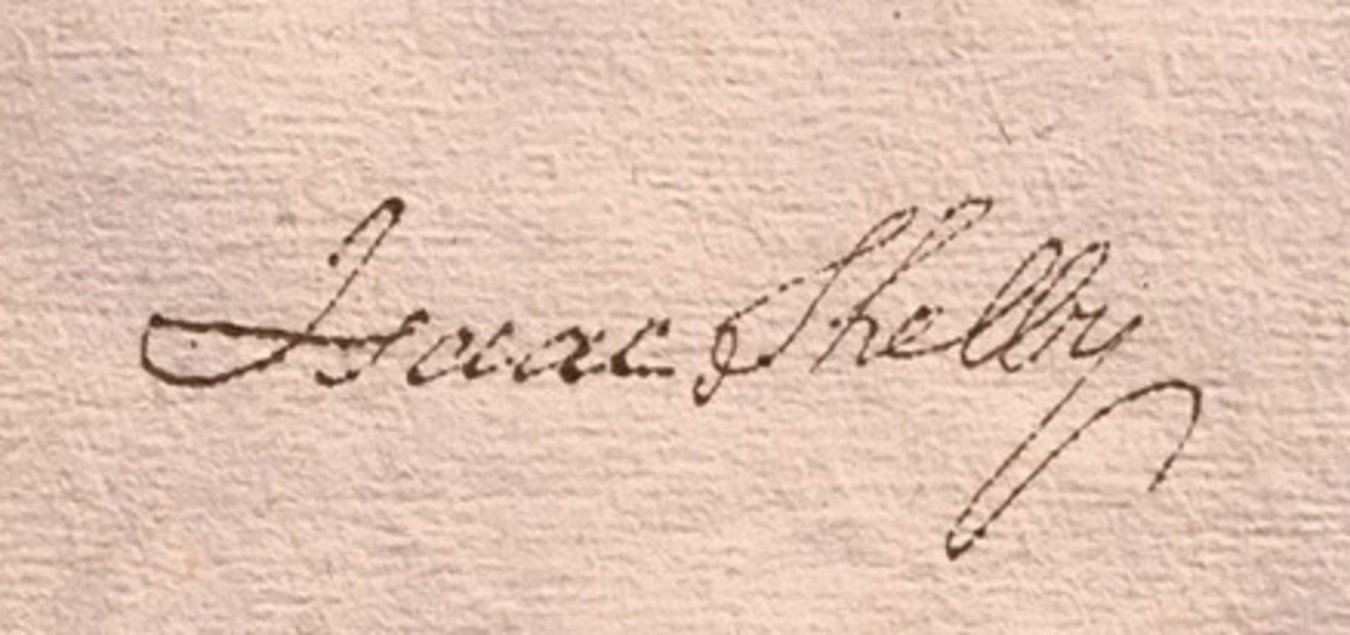 Isaac Shelby